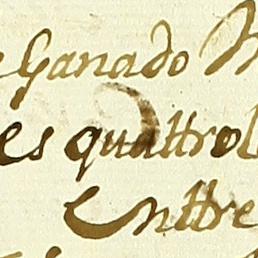 Ganado
es quattro
Enttre